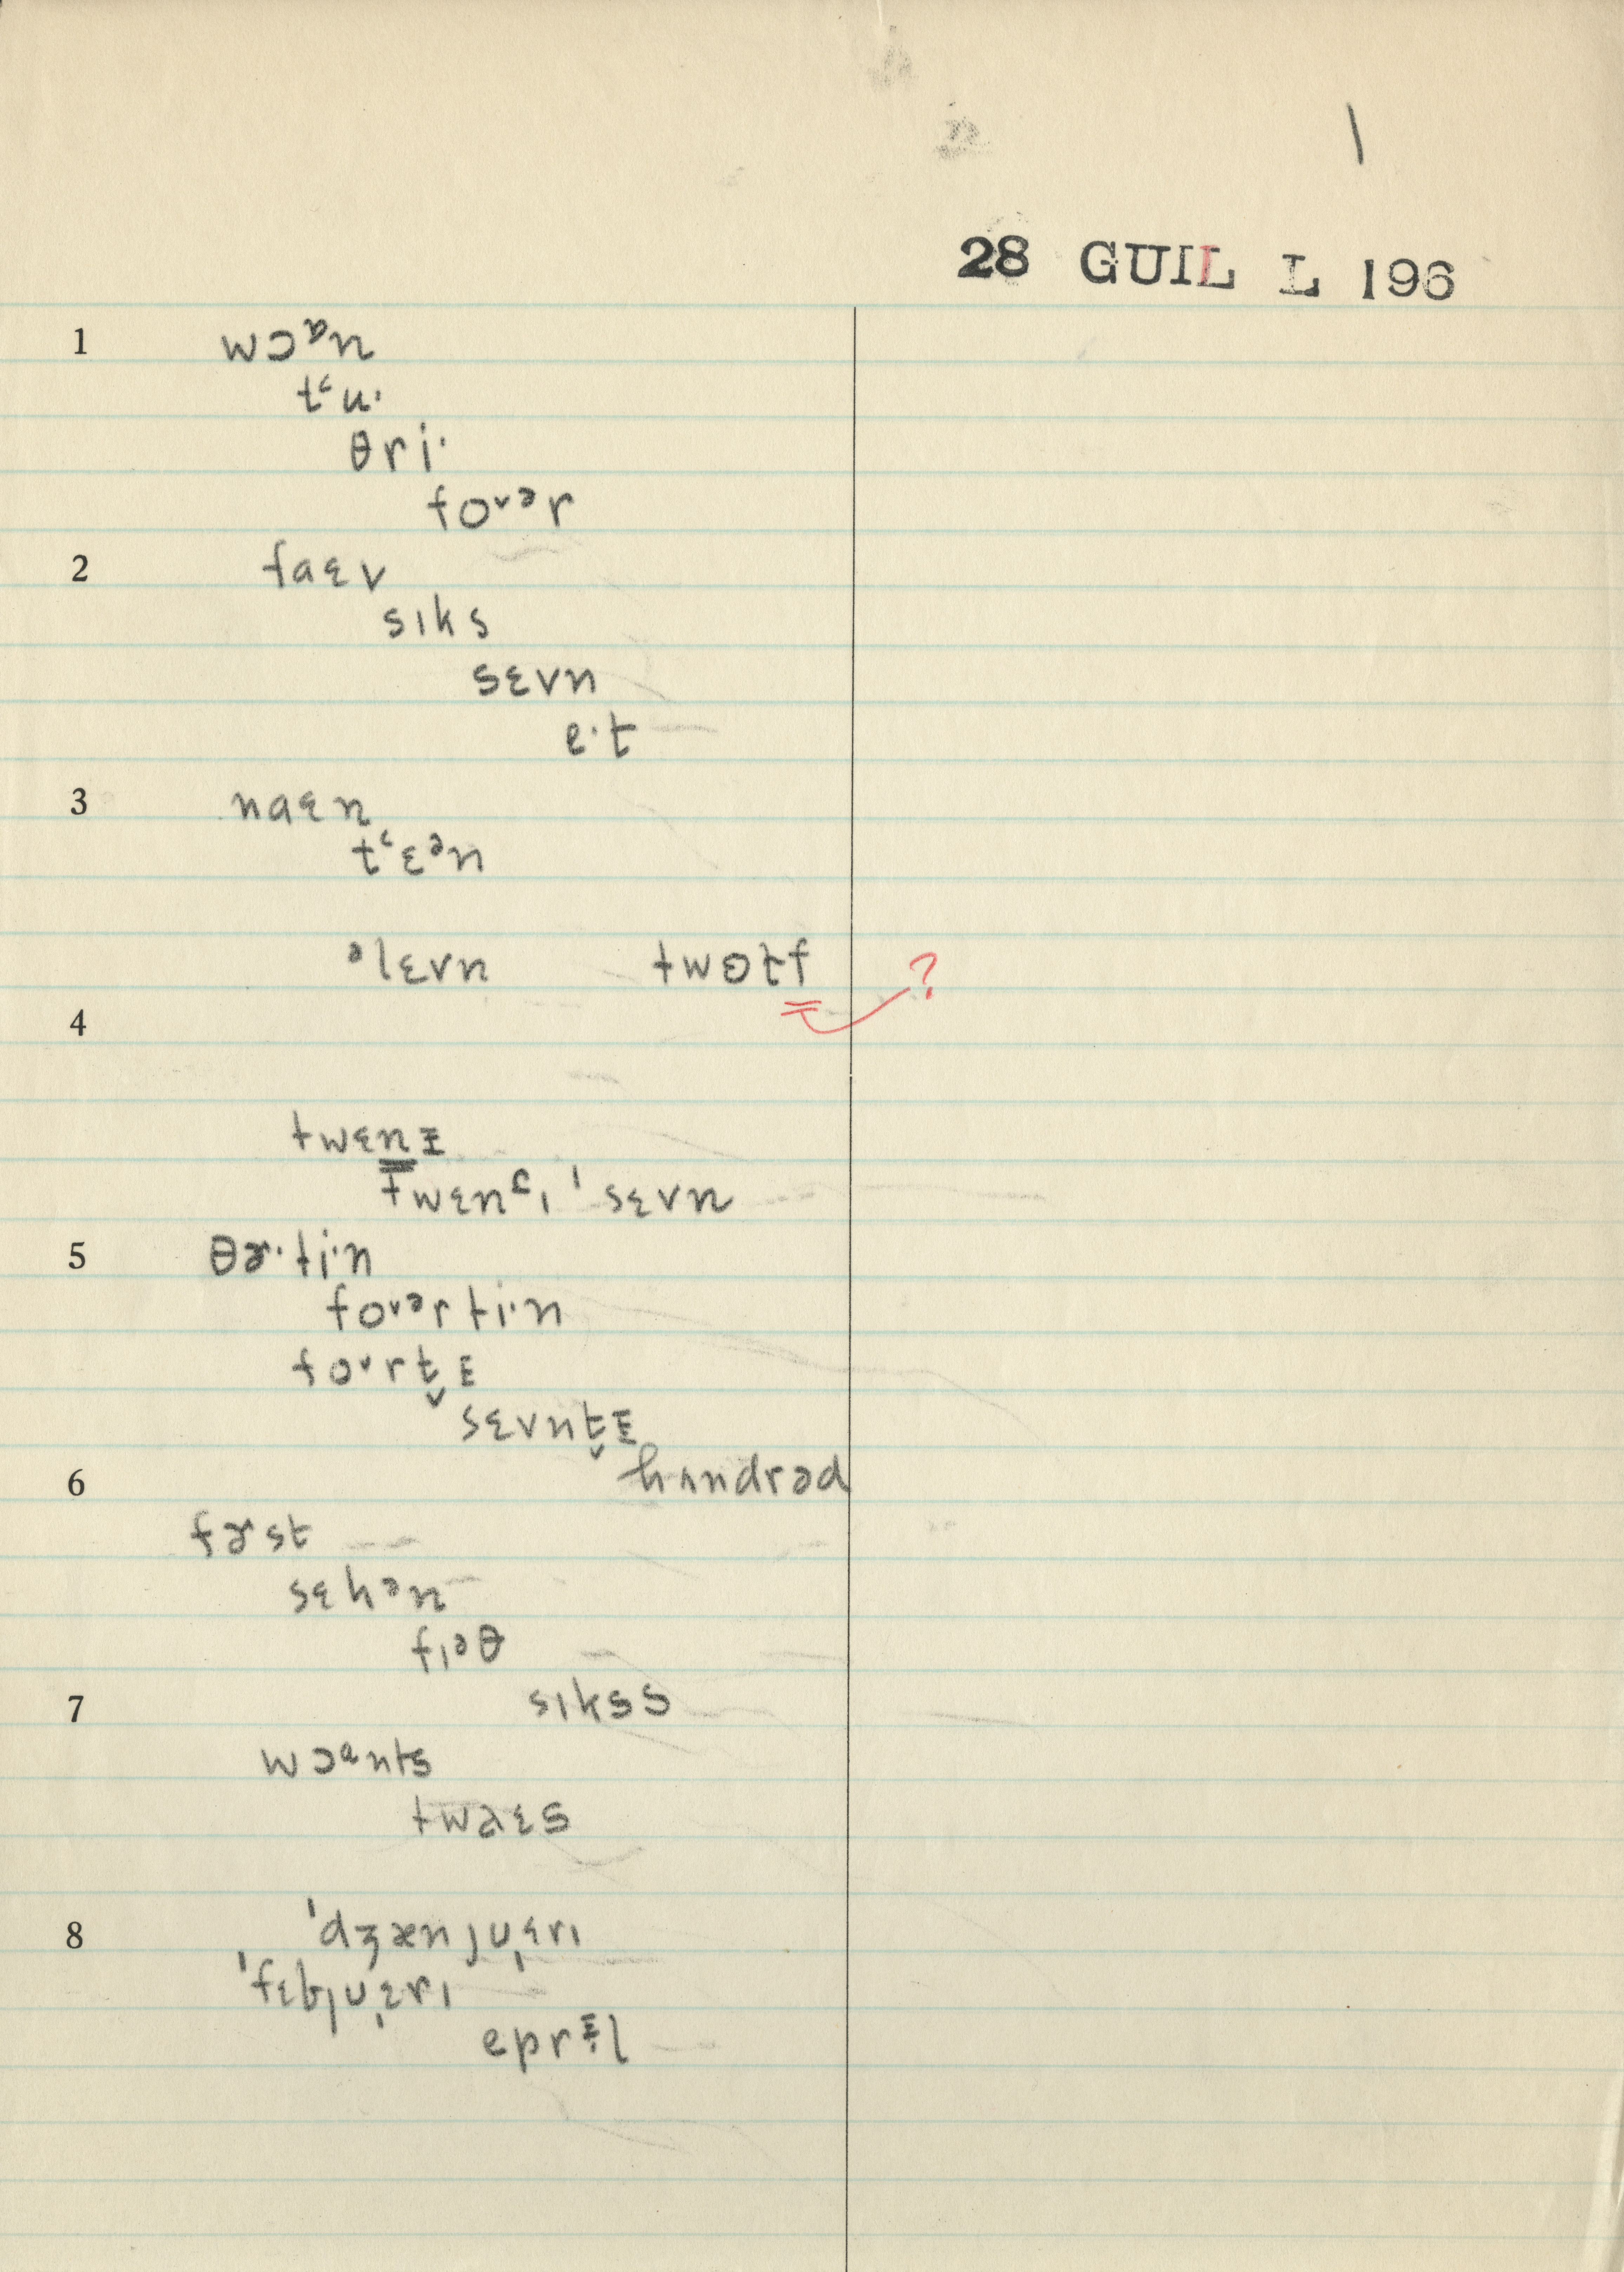 1
28 GUIL L 196
1 wɔɒn
tʻu·
θri·
foᵛᵊr
2 faɛv
sıks
sɛvn
e·t
3 naɛn
tʻɛᵊn
ᵊlɛvn twɵtf ?
4
twɛnɪ
twɛnᶜı ˈsɛvn
5 θɚ·ti·n
foᵛᵊrti·n
foᵛrt̬ɪ
sɛvnt̬ɪ
6 hʌndrəd
fɚst
sɛkᵊn
fıəθ
7 sıkss
wɔᵃnts
twaɛs
8 ˈdʒænjuˌɛrı
ˈfɛbjuˌɛrı
eprɪl